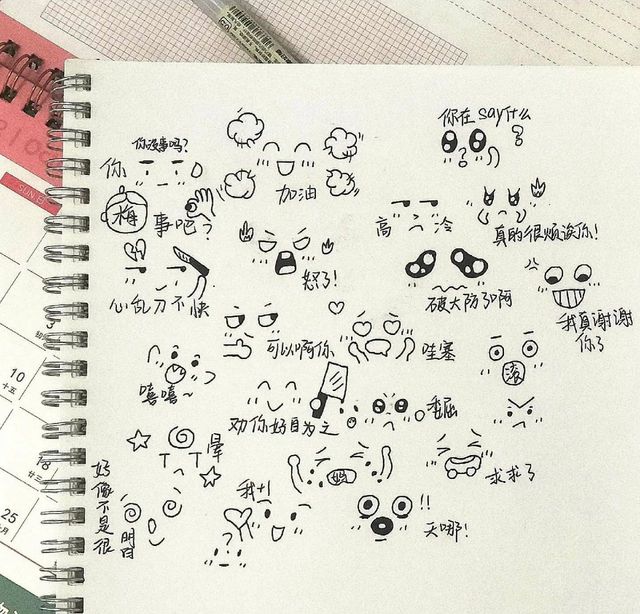 你没事吗?
你
梅
事吧?
加油
你在say什么
?
高 冷
真的很烦诶你!
心乱刀不快
怒了!
破大防了啊
我真谢谢
你了
可以啊你
哇塞
滚
嘻嘻~
劝你好自为之
委屈
晕
求求了
好像不是很
明白
我+1
天哪!
!!
SUN 日
10
十五
18
25